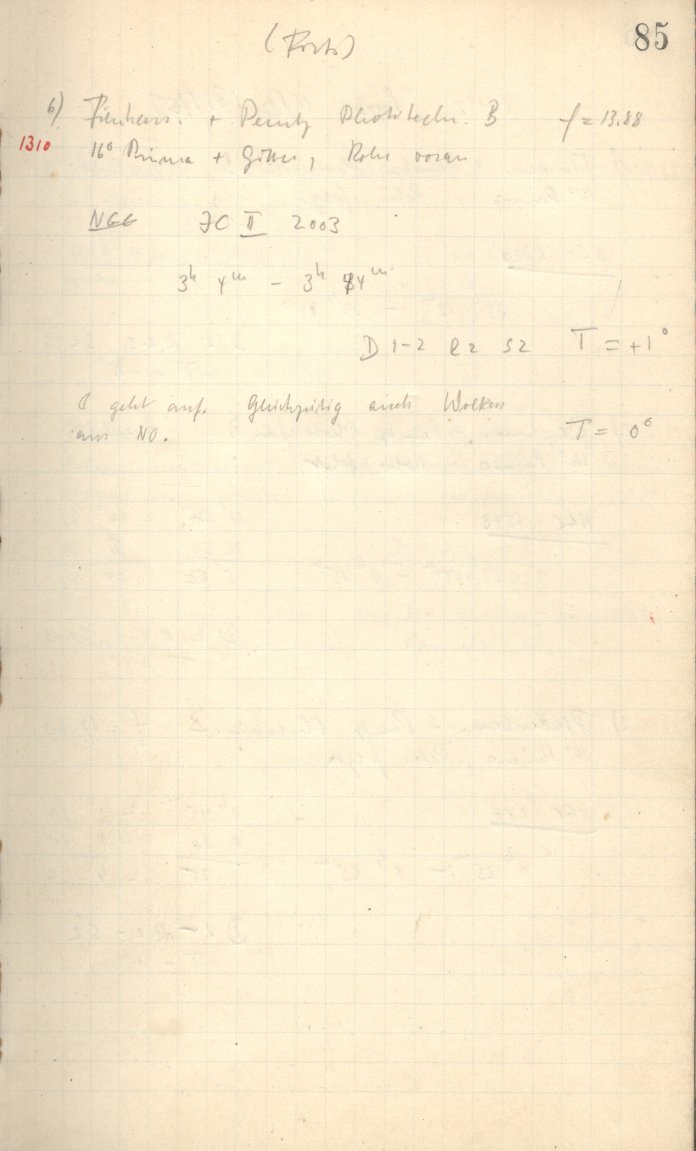 (Forts)
85
6) + Perutz Phototechn. B f = 13.88
1310 16° Prisma + Gitter, Rohr voran
NGC JC II 2003
3h 4m – 3h 44m
D 1-2 R2 S2 T = +1°
☾ geht auf. Gleichzeitig auch Wolken
aus NO. T = 0°